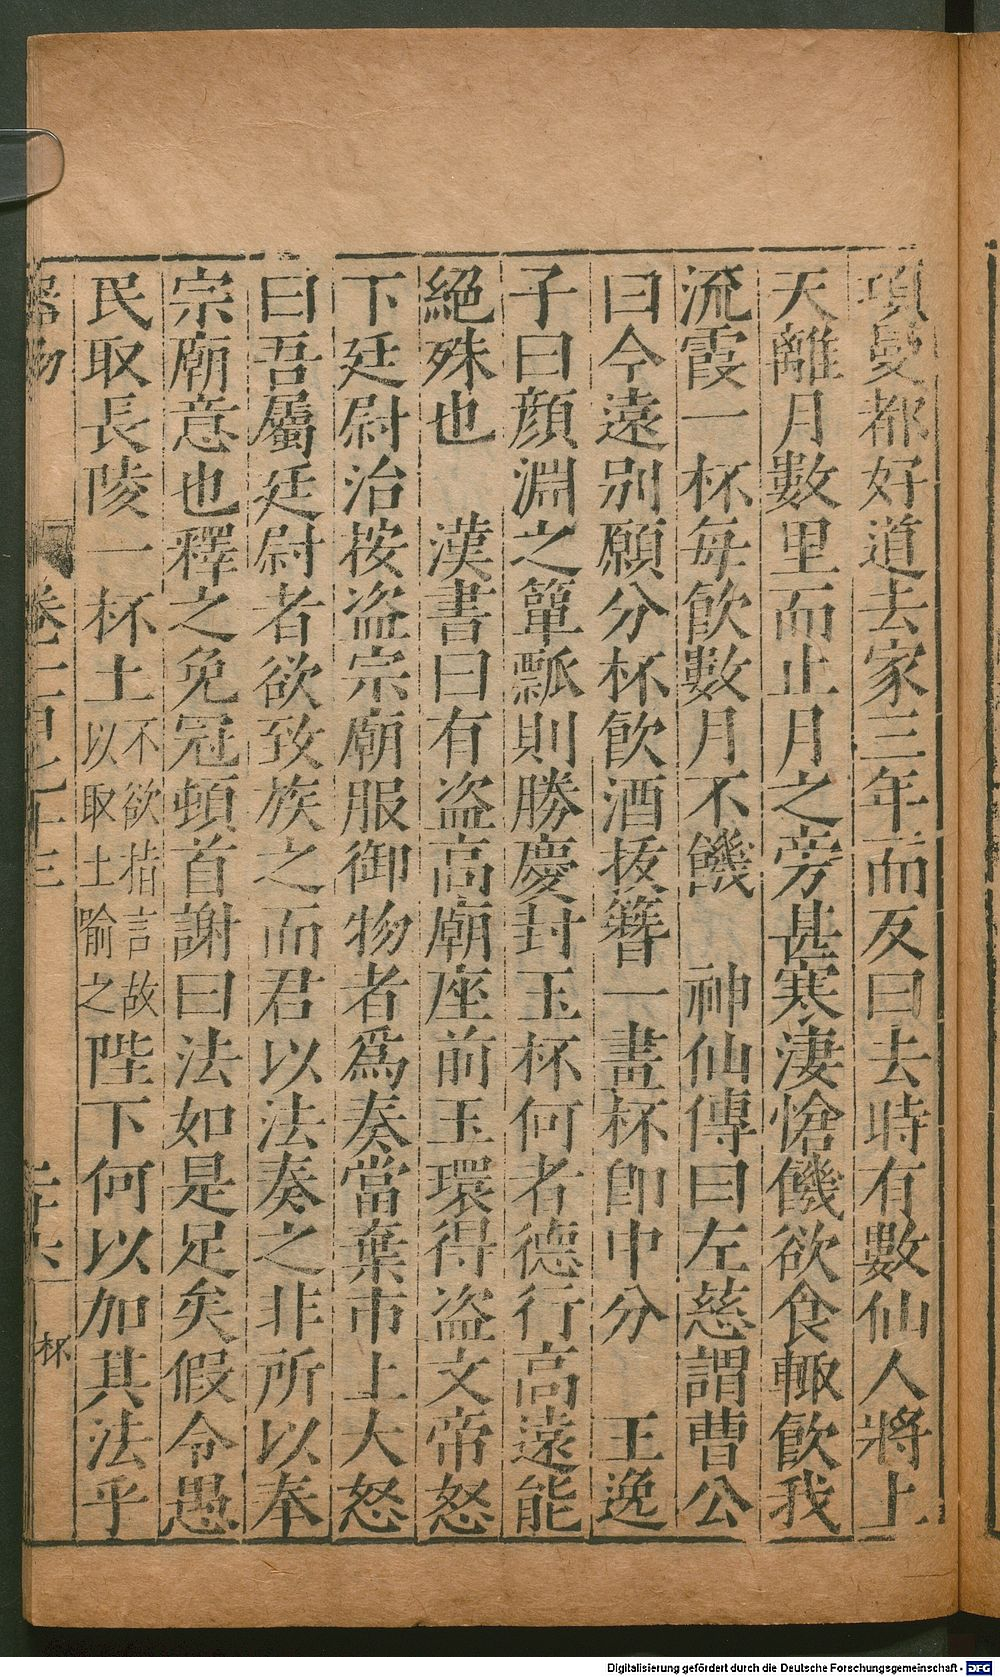 項曼都好道去家三年而反曰去時有數仙人將上
天離月數里而止月之旁甚寒凄愴饑欲食輙飲我
流霞一杯每飲數月不饑　神仙傳曰左慈謂曹公
曰今遠别願分杯飲酒拔簪一畫杯即中分　王逸
子曰顔淵之簞瓢則勝慶封玉杯何者德行高遠能
絕殊也　漢書曰有盗高廟座前玉環得盗文帝怒
下廷尉治按盗宗廟服御物者爲奏當棄市上大怒
曰吾屬廷尉者欲致族之而君以法奏之非所以奉
宗廟意也釋之免冠頓首謝曰法如是足矣假令愚
民取長陵一杯土不欲指言故以取土喻之陛下何以加其法乎
器物　卷一百七十三　二十六　杯
Digitalisierung gefördert durch die Deutsche Forschungsgemeinschaft - DFG